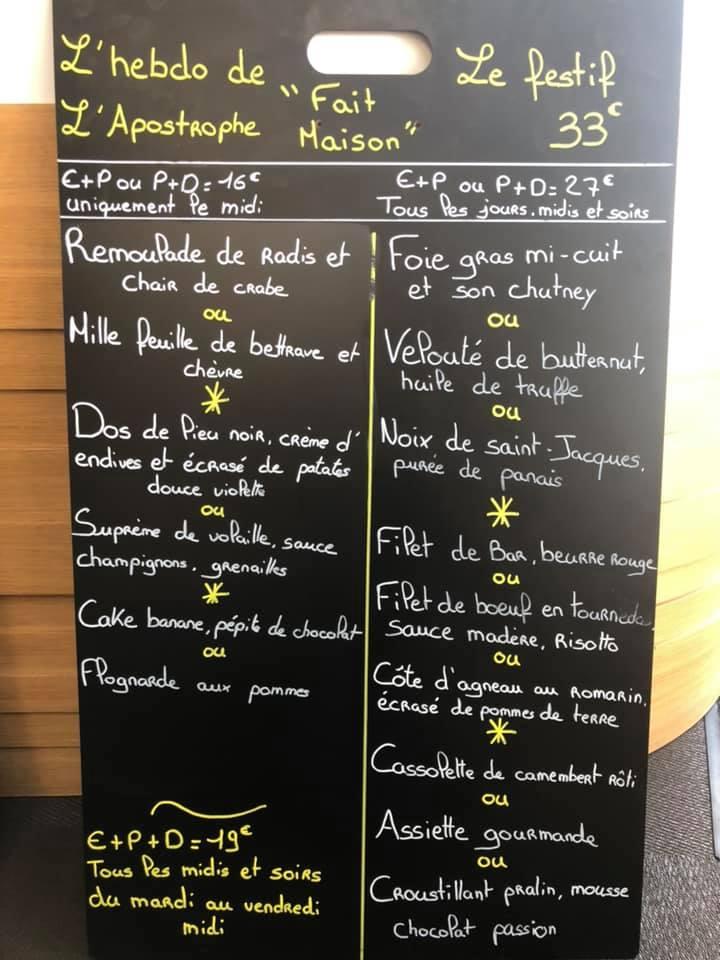 L'hebdo de
L'Apostrophe
"Fait
Maison"
Le festif
33€
E+P ou P+D=16€
uniquement le midi
E+P ou P+D=27€
Tous les jours. midis et soirs
Remoulade de radis et
chair de crabe
ou
Mille feuille de bettrave et
chèvre
*
Dos de lieu noir, crème d'
endives et écrasé de patates
douce violette
ou
Suprème de volaille, sauce
champignons. grenailles
*
Cake banane, pépite de chocolat
ou
Flognarde aux pommes
E+P+D=19€
Tous les midis et soirs
du mardi au vendredi
midi
Foie gras mi-cuit
et son chutney
ou
Velouté de butternut,
huile de truffe
ou
Noix de saint-Jacques,
purée de panais
*
Filet de Bar, beurre rouge
ou
Filet de boeuf en tournedo,
sauce madère, risotto
ou
Côte d'agneau au romarin,
écrasé de pommes de terre
*
Cassolette de camembert rôti
ou
Assiette gourmande
ou
Croustillant pralin, mousse
chocolat passion